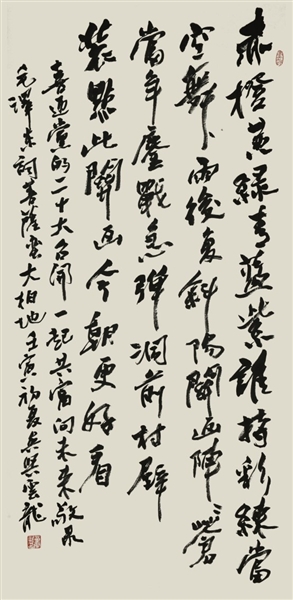 赤橙黄綠青藍紫誰持彩練當
空舞雨後复斜陽關山陣陣蒼
當年鏖戰急彈洞前村壁
裝點此關山今朝更好看
喜迎党的二十大召開一起共富向未来敬录
毛澤东詞菩薩蠻大柏地壬寅初夏吴興雲龍